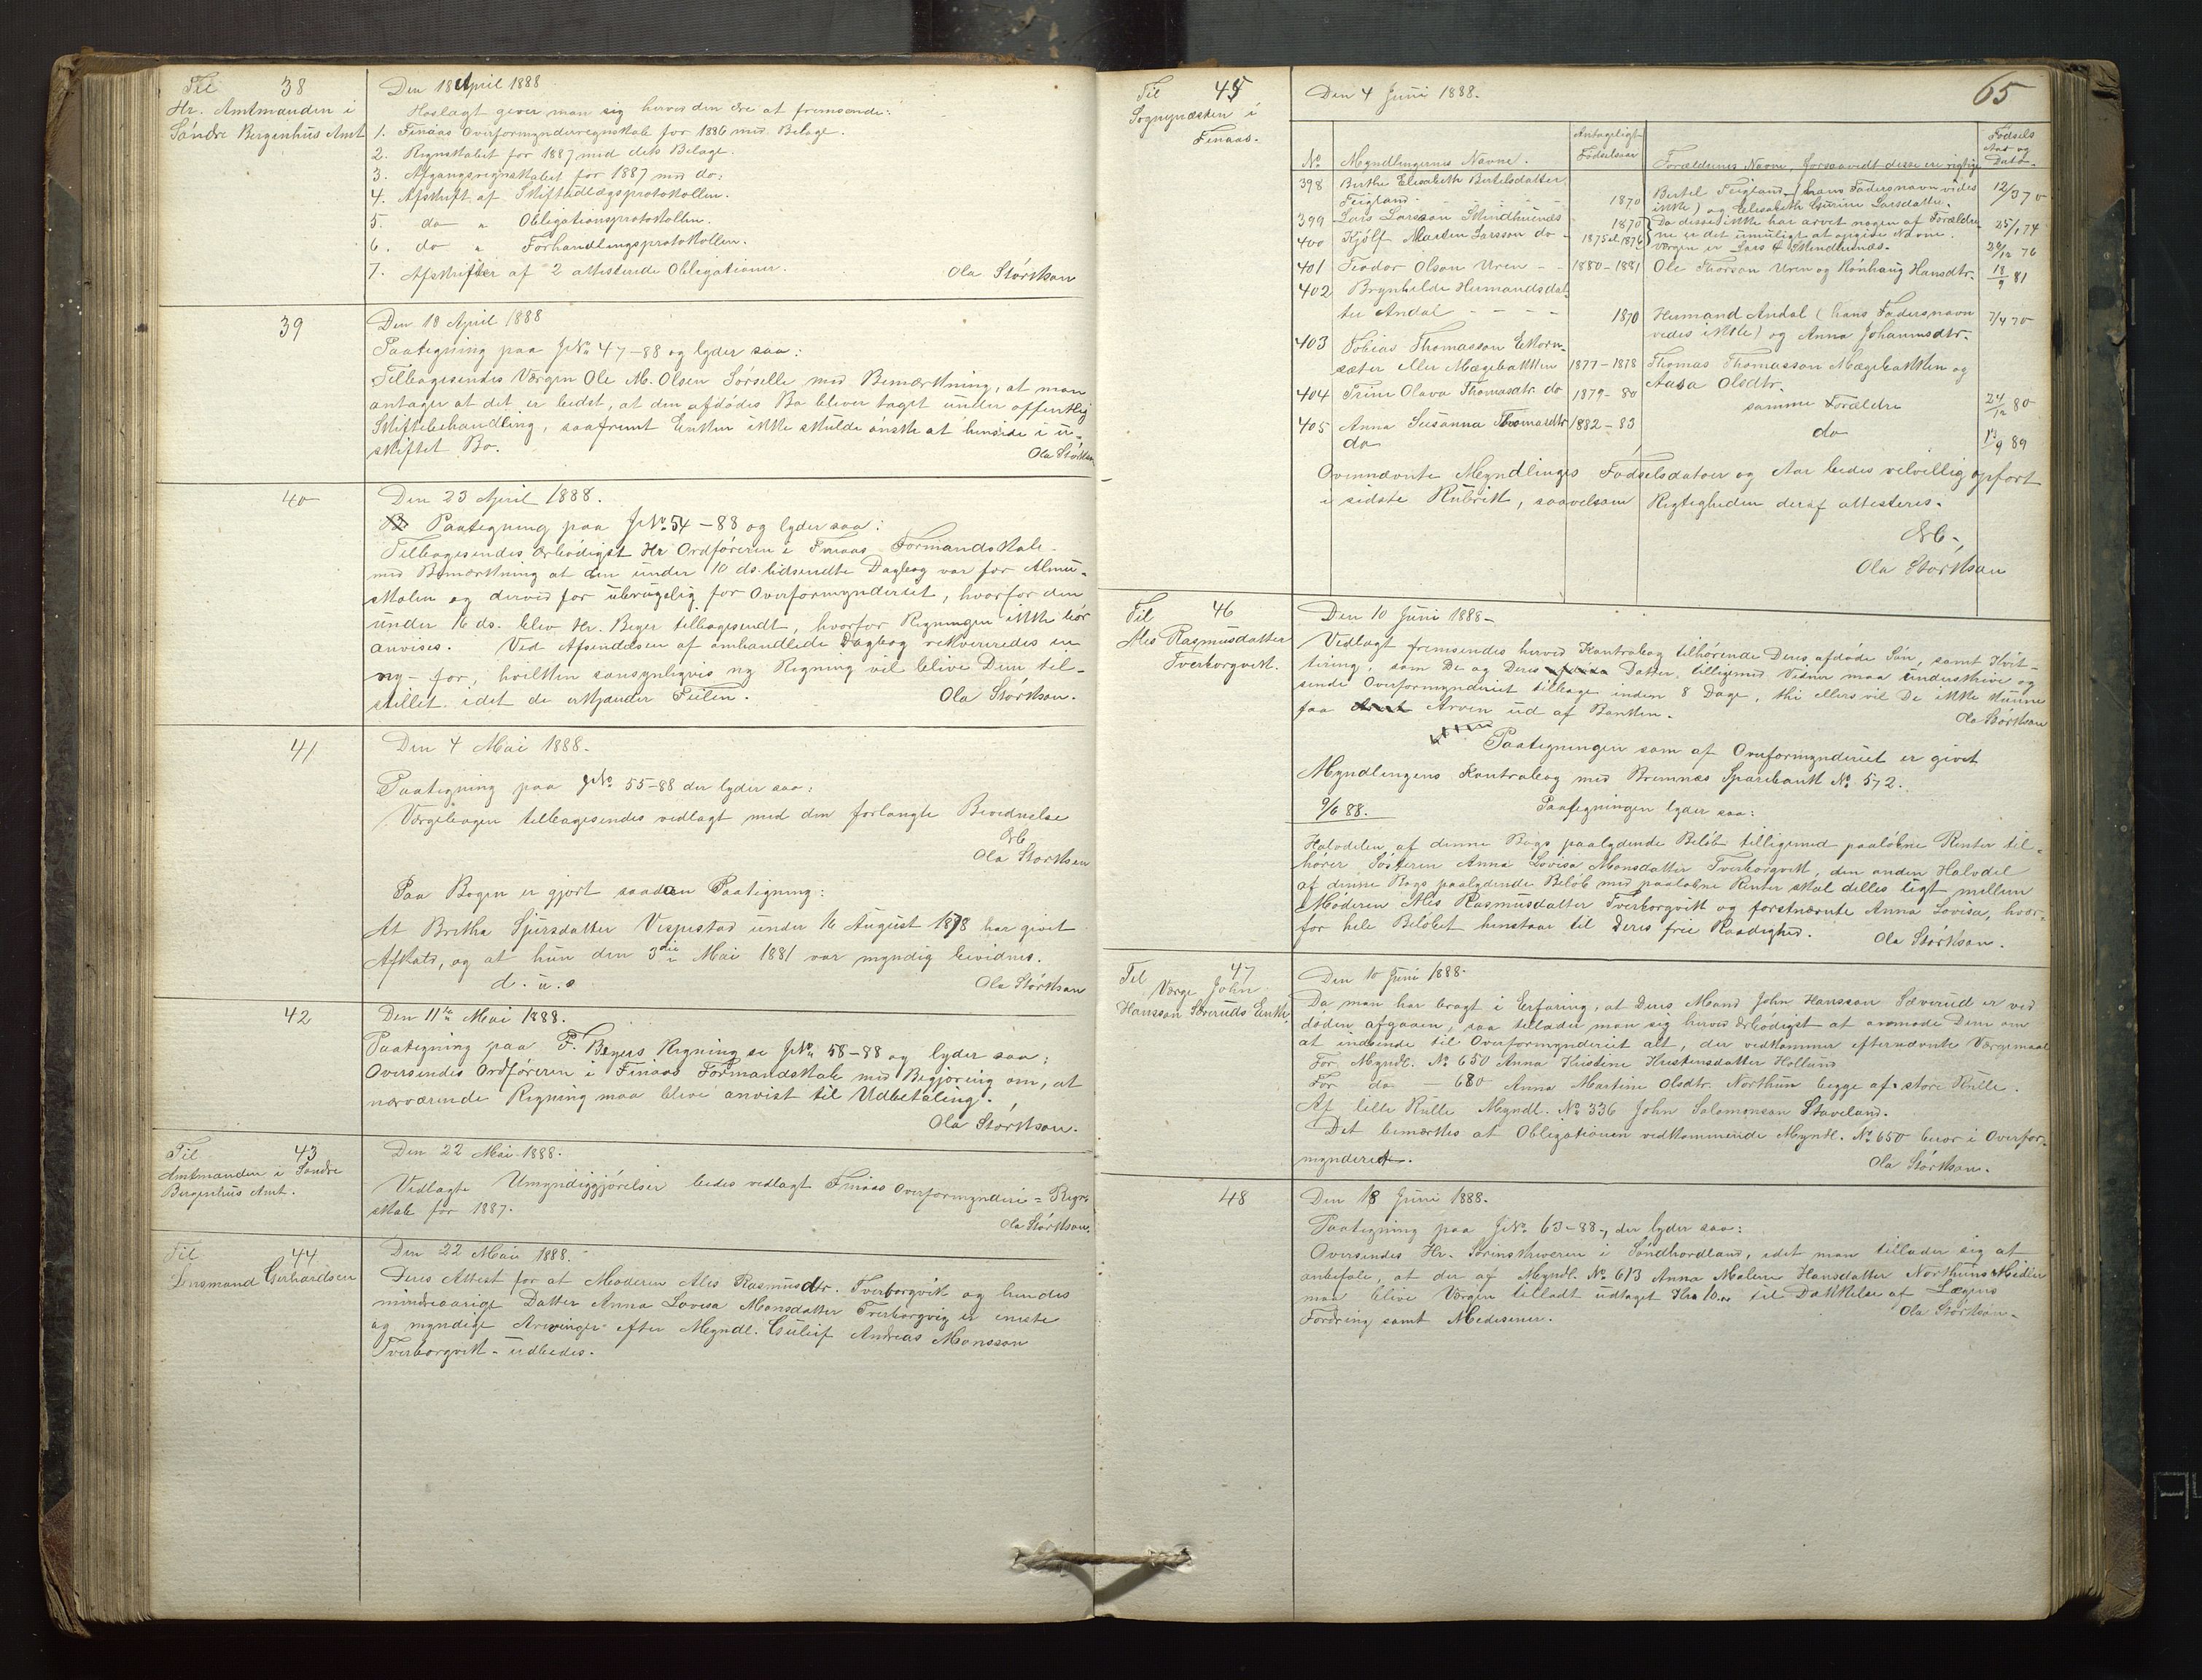 Til 38
Hr. Amtmanden i
Søndre Bergenhus Amt
Den 18 April 1888
Hoslagt giver man sig herved den Ære at fremsende:
1. Finaas Overformynderregnskab for 1886 med Bilage.
2. Regnskabet for 1887 med dets Bilage.
3. Afgangsregnskabet for 1887 med do:
4. Afskrift af Skifteudlægsprotokollen.
5. do " Obligationsprotokollen.
6. do " Forhandlingsprotokollen.
7. Afskrifter af 2 attesterede Obligationer.
Ola Størkson
39
Den 18 April 1888
Paategning paa JNo 47-88 og lyder saa:
Tilbagesendes Værgen Ole M. Olsen Sørselle med Bemærkning, at man
antager at det er bedst, at den afdødes Bo bliver taget under offentlig
Skiftebehandling, saafremt Enken ikke skulde ønske at hensidde i u-
skiftet Bo.
Ola Størkson
40
Den 23 April 1888.
Paategning paa JNo 54-88 og lyder saa:
Tilbagesendes ærbødigst Hr Ordføreren i Finaas Formandskab
med Bemærkning at den under 10 ds. tilsendte Dagbog var for Almu-
skolen og derved for ubrugelig for Overformynderiet, hvorfor den
under 16 ds. blev Hr. Beyer tilbagesendt, hvorfor Regningen ikke bør
anvises. Ved Afsendelsen af omhandlede Dagbog rekvireredes en
ny - for, hvilken sansynligvis ny Regning vil blive Dem til-
stillet idet de erkjender Feilen.
Ola Størkson.
41
Den 4 Mai 1888.
Paategning paa JNo. 55-88 der lyder saa:
Værgebogen tilbagesendes vedlagt med den forlangte Bevidnelse
Ærb
Ola Størkson
Paa Bogen er gjort saadan Paategning:
At Bretha Sjursdatter Vispestad under 16 August 1878 har givet
Afkald, og at hun den 3die Mai 1881 var myndig bevidnes.
d. u. s
Ola Størkson
42
Den 11te Mai 1888.
Paategning paa F. Beyers Regning se JNo 58-88 og lyder saa:
Oversendes Ordføreren i Finaas Formandskab med Begjøring om, at
nærværende Regning maa blive anvist til Udbetaling.
Ola Størkson.
Til 43
Amtmanden i Søndre
Bergenhus Amt.
Den 22 Mai 1888.
Vedlagte Umyndiggjørelser bedes vedlagt Finaas Overformynderi-Regn-
skab for 1887.
Ola Størkson.
Til 44
Lensmand Gerhardsen
Den 22 Mai 1888.
Deres Attest for at Moderen Ales Rasmusdtr. Tverborgvik og hendes
mindreaarige Datter Anna Lovisa Monsdatter Tverborgvig er eneste
og myndige Arvinger efter Myndl. Gulleif Andreas Monsson
Tverborgvik - udbedes.
65
Til 45
Sognepræsten i
Finaas.
Den 4 Juni 1888.
No Myndlingernes Navne. Antageligt Fødselsaar Forældrenes Navne, forsaavidt disse er rigtige Fødsels Aar og Dato
398 Berthe Elisabeth Bertelsdatter
Feigland - 1870 Bertel Feigland (hans Fadersnavn vides ikke) og Elisabeth Gurine Larsdatter. 12/3 70
399 Lars Larsson Skindhuenæs 1870 Da disse ikke har arvet nogen af Forældre- 25/1 74
400 Kjølf Martin Larsson do - 1875 el. 1876 ne er det umuligt at opgive Navne. Værgen er Lars Skindhuenæs. 24/12 76
401 Teodor Olson Uren - - 1880-1881 Ole Thorson Uren og Rønhaug Hansdtr. 18/9 81
402 Brynhilde Hermandsdat-
ter Andal - - - - 1870 Hermand Andal (hans Fadersnavn 7/4 70
vedes ikke) og Anna Johannsdtr.
403 Tobias Thomasson Ekorn-
sæter eller Mægebakken 1877-1878 Thomas Thomasson Mægebakken og
Aasa Olsdtr.
404 Trine Olava Thomasdtr do 1879-80 samme Forældre 24/12 80
405 Anna Susanna Thomasdtr 1882-83
do do 13/9 89
Ovennævnte Myndlinges Fødselsdatoer og Aar bedes velvillig opført
i sidste Rubrik, saavelsom Rigtigheden deraf attesteres.
Ærb-
Ola Størkson
Til 46
Ales Rasmusdatter
Tverborgvik.
Den 10 Juni 1888-
Vedlagt fremsendes herved Kontrabog tilhørende Deres afdøde Søn, samt Kvit-
tering, som De og Deres Datter, tilligemed Vidner maa underskrive og
sende Overformynderiet tilbage inden 8 Dage, thi ellers vil De ikke kunne
faa Arven ud af Banken.
Ola Størkson
Paategningen som af Overformynderiet er givet
Myndlingens Kontrabog med Bremnæs Sparebank No. 572.
9/6 88. Paategningen lyder saa:
Halvdelen af denne Bogs paalydende Beløb tilligemed paaløbne Renter til-
hører Søsteren Anna Lovisa Monsdatter Tverborgvik, den anden Halvdel
af denne Bogs paalydende Beløb med paaløbne Renter skal delles ligt mellem
Moderen Ales Rasmusdatter Tverborgvik og førstnævnte Anna Lovisa, hvor-
for hele Beløbet henstaar til Deres frie Raadighed.
Ola Størkson.
Til 47
Værge John
Hansson Sæveruds Enke.
Den 10 Juni 1888.
Da man har bragt i Erfaring, at Deres Mand John Hansson Sæverud er ved
døden afgaaen, saa tillader man sig herved ærbødigst at anmode Dem om
at indsende til Overformynderiet alt, der vedkommer efternævnte Værgemaal
For Myndl. No 650 Anna Kristine Kristensdatter Hollund
For do - 680 Anna Martine Olsdtr. Northun begge af store Rulle.
Af lille Rulle Myndl. No 336 John Salomonsson Staveland.
Det bemærkes at Obligationen vedkommende Myndl. No 650 beror i Overfor-
mynderiet.
Ola Størkson.
48
Den 18 Juni 1888.
Paategning paa JNo. 63-88, der lyder saa:
Oversendes Hr. Sorenskriveren i Søndhordland, idet man tillader sig at
anbefale, at der af Myndl. No 613 Anna Malene Hansdatter Northuns Midler
maa blive Værgen tilladt udtaget Kr. 10.00 til Dækkelse af Lægens
Fordring samt Medesiner.
Ola Størkson.